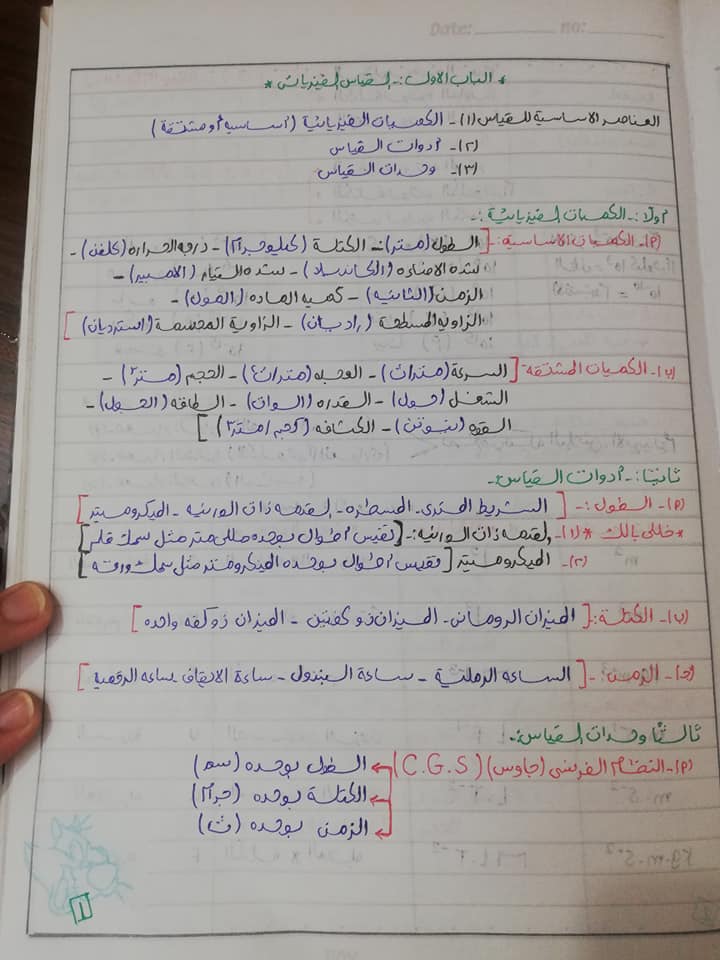 Date: no:
* الباب الاول :- القياس الفيزيائى *
العناصر الاساسية للقياس (١)- الكميات الفيزيائية (أساسية أو مشتقة)
(٢)- أدوات القياس
(٣)- وحدات القياس
أولًا :- الكميات الفيزيائية :-
(P)- الكميات الاساسية :- [الطول (متر) - الكتلة (كيلوجرام) - درجة الحراره (كلفن) -
شدة الاضاءه (الكانديلا) - شده التيار (الامبير) -
الزمن (الثانيه) - كميه الماده (المول) -
الزاويه المسطحة (راديان) - الزاوية المجسمة (استرديان)]
(ب)- الكميات المشتقه [السرعة (متر/ث) - العجله (متر/ث٢) - الحجم (متر٣) -
الشغل (جول) - القدره (الوات) - الطاقه (الجول) -
القوه (نيوتن) - الكثافه (كجم/متر٣)]
ثانيًا :- أدوات القياس :-
(P)- الطول :- [الشريط المترى - المسطره - القدمه ذات الورنيه - الميكروميتر]
* خللى بالك * (١)- القدمه ذات الورنيه :- [تقيس أطوال بوحده مللى متر مثل سمك قلم]
(٢)- الميكروميتر [تقيس أطوال بوحده الميكرومتر مثل سمك ورقه]
(ب)- الكتلة :- [الميزان الرومانى - الميزان ذو كفتين - الميزان ذو كفه واحده]
(ج)- الزمن :- [الساعه الرملية - ساعة البندول - ساعة الايقاف - ساعه الرقمية]
ثالثًا وحدات القياس :-
(P)- النظام الفرنسى (جاوس) (C.G.S) الطول بوحده (سم)
الكتلة بوحده (جرام)
الزمن بوحده (ث)
١